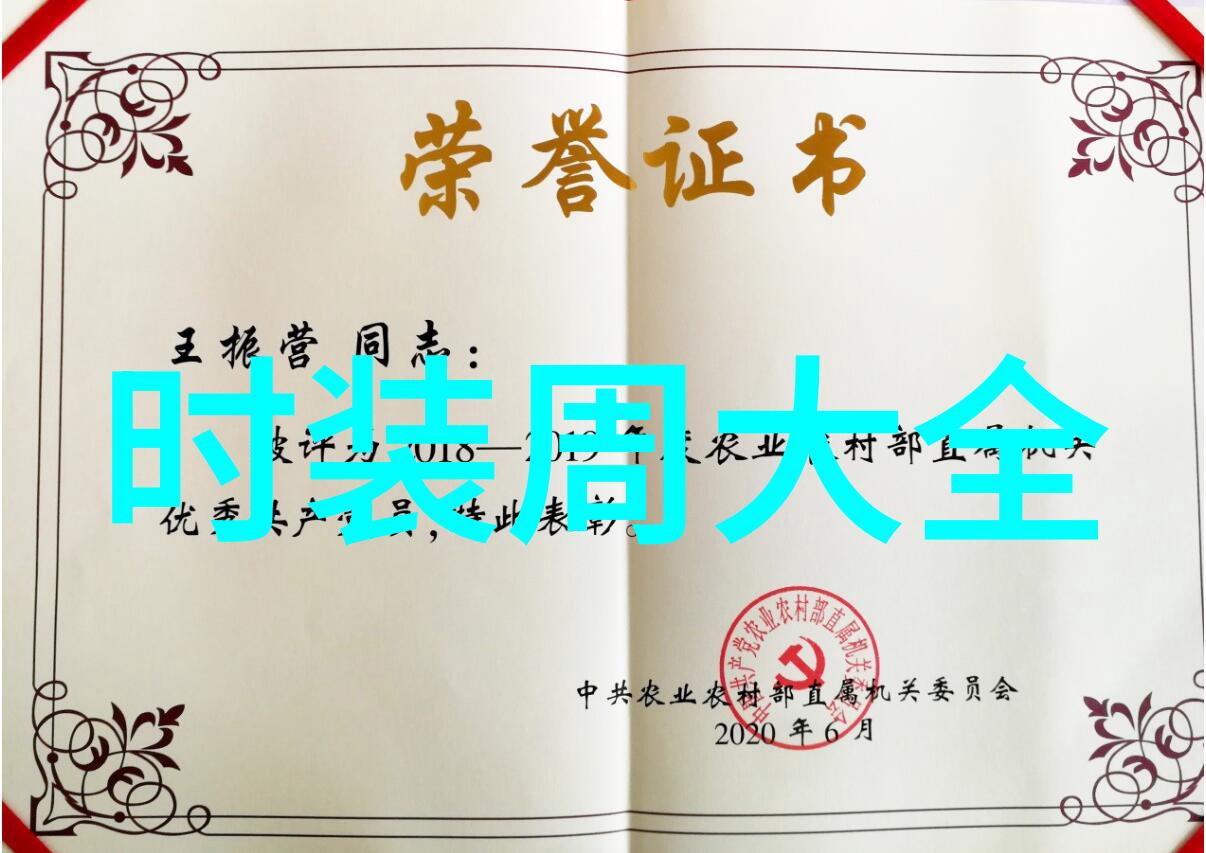 荣誉证书
王振营 同志：
时装周大全
被评为2018—2019年度农业农村部直属机关
优秀共产党员，特此表彰。
中国共产党农业农村部直属机关委员会
中共农业农村部直属机关委员会
2020年6月